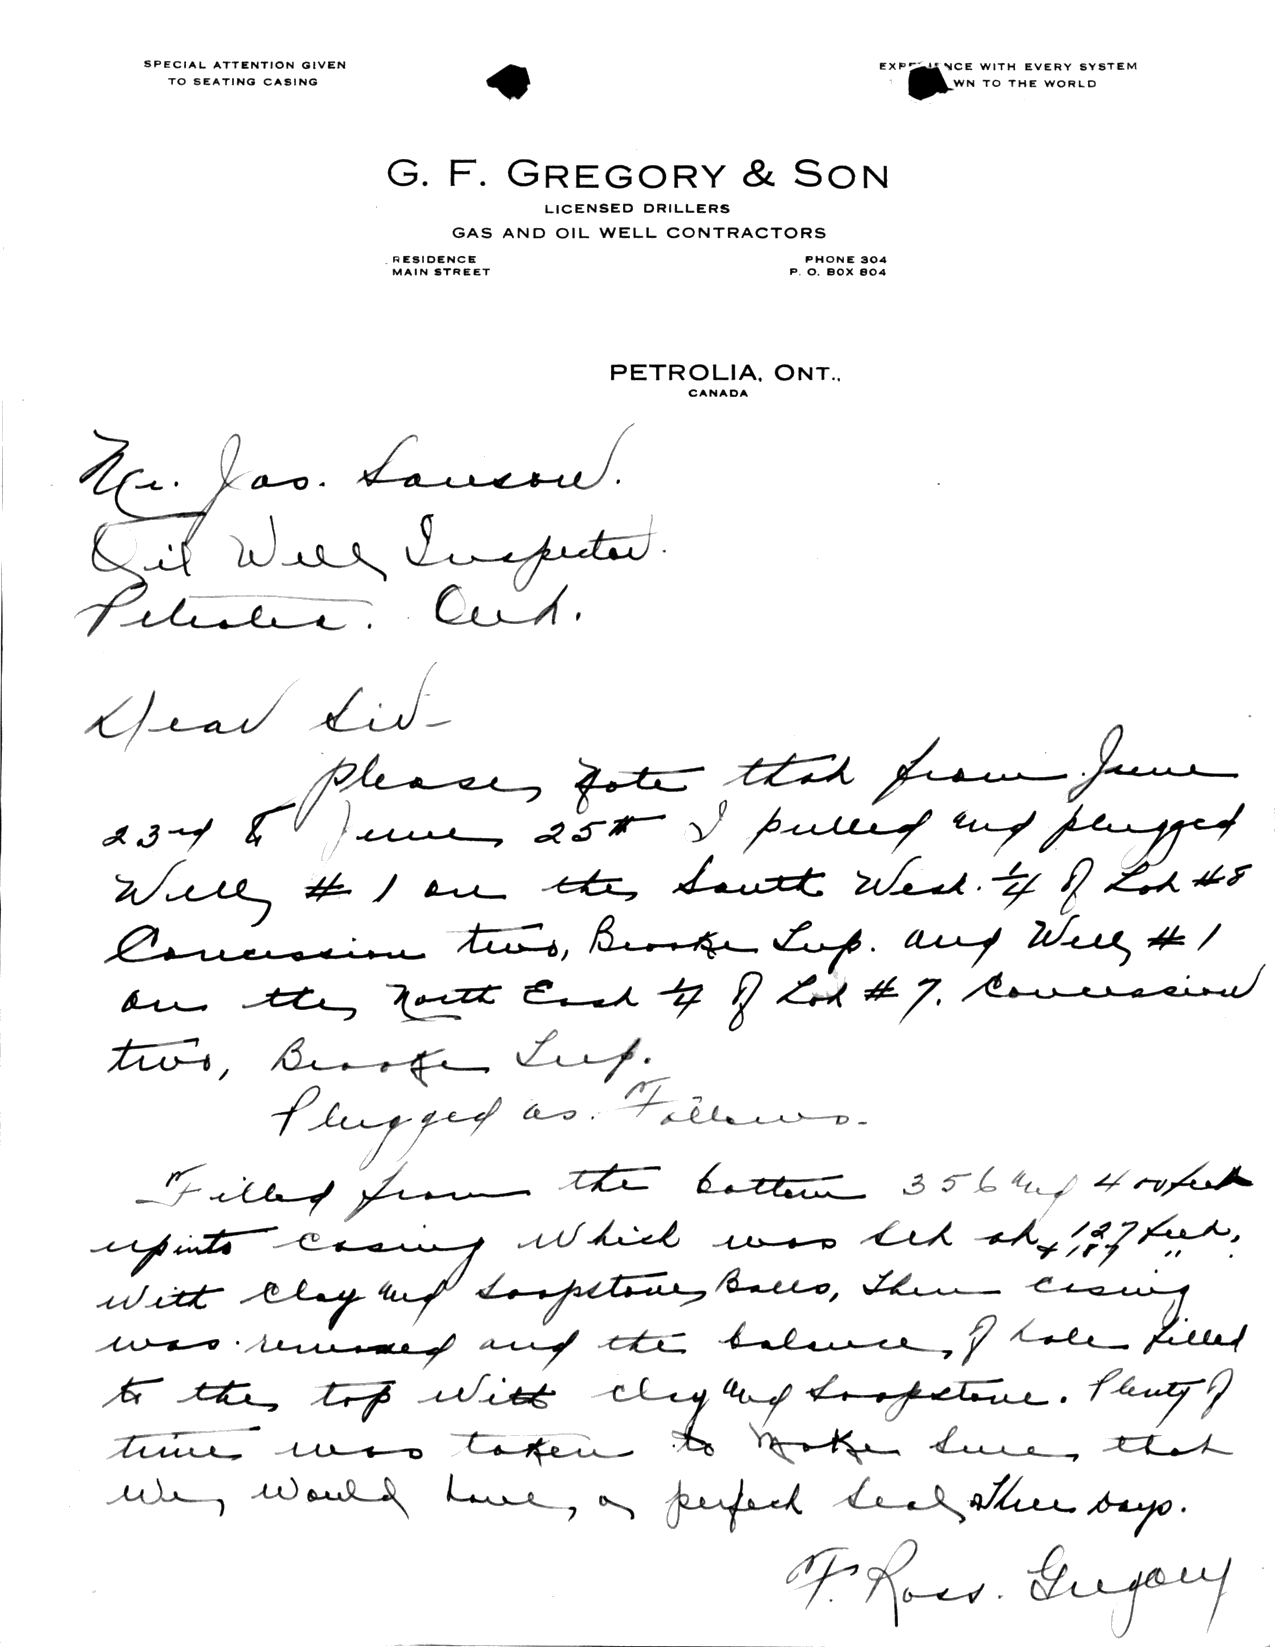 SPECIAL ATTENTION GIVEN
TO SEATING CASING
WITH EVERY SYSTEM
TO THE WORLD
G. F. GREGORY & SON
LICENSED DRILLERS
GAS AND OIL WELL CONTRACTORS
RESIDENCE
MAIN STREET
PHONE 304
P. O. BOX 804
PETROLIA, ONT.,
CANADA
Mr. Jas.
Oil Well Inspector.
Petrolia. Ont.
Dear Sir-
Please Note that from June
23rd to June 25th I pulled and plugged
Well #1 on the South West. 1/4 of Lot #8
Concession two, Brooke Twp. and Well #1
on the North East 1/4 of Lot #7. Concession
two, Brooke Twp.
Plugged as. Follows-
Filled from the bottom 356 and 400 feet
up into casing Which was set at 127 feet,
+ 187 "
With clay and Soapstone Balls, Then casing
was removed and the balance of hole filled
to the top With clay and Soapstone. Plenty of
time was taken to Make Sure that
We Would have a perfect Seal, Three days.
F. Ross. Gregory